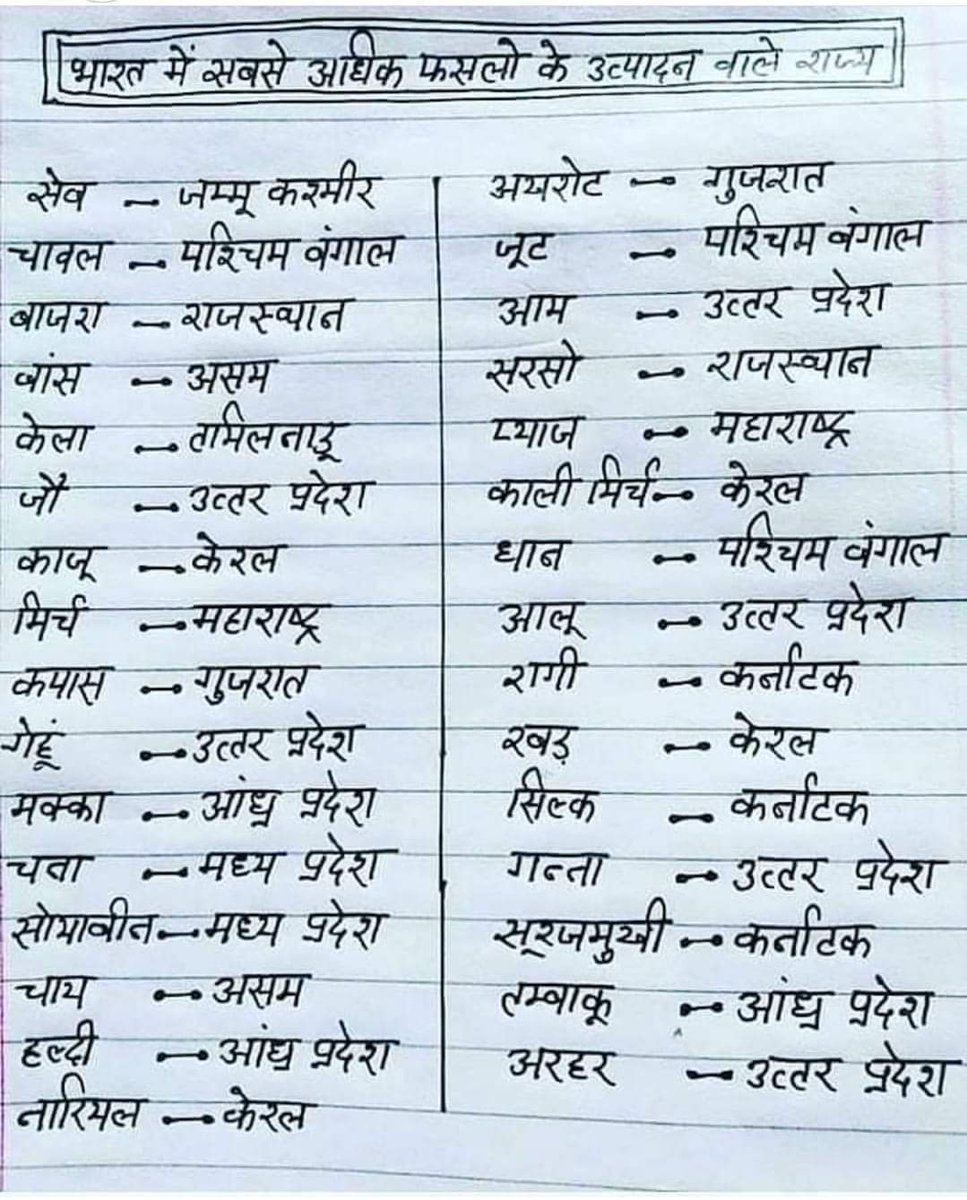 भारत में सबसे अधिक फसलो के उत्पादन वाले राज्य
सेव – जम्मू कश्मीर
चावल – पश्चिम बंगाल
बाजरा – राजस्थान
बांस – असम
केला – तमिलनाडू
जौ – उत्तर प्रदेश
काजू – केरल
मिर्च – महाराष्ट्र
कपास – गुजरात
गेहूं – उत्तर प्रदेश
मक्का – आंध्र प्रदेश
चना – मध्य प्रदेश
सोयाबीन – मध्य प्रदेश
चाय – असम
हल्दी – आंध्र प्रदेश
नारियल – केरल
अखरोट – गुजरात
जूट – पश्चिम बंगाल
आम – उत्तर प्रदेश
सरसो – राजस्थान
प्याज – महाराष्ट्र
काली मिर्च – केरल
धान – पश्चिम बंगाल
आलू – उत्तर प्रदेश
रागी – कर्नाटक
रबड़ – केरल
सिल्क – कर्नाटक
गन्ना – उत्तर प्रदेश
सूरजमुखी – कर्नाटक
तम्बाकू – आंध्र प्रदेश
अरहर – उत्तर प्रदेश